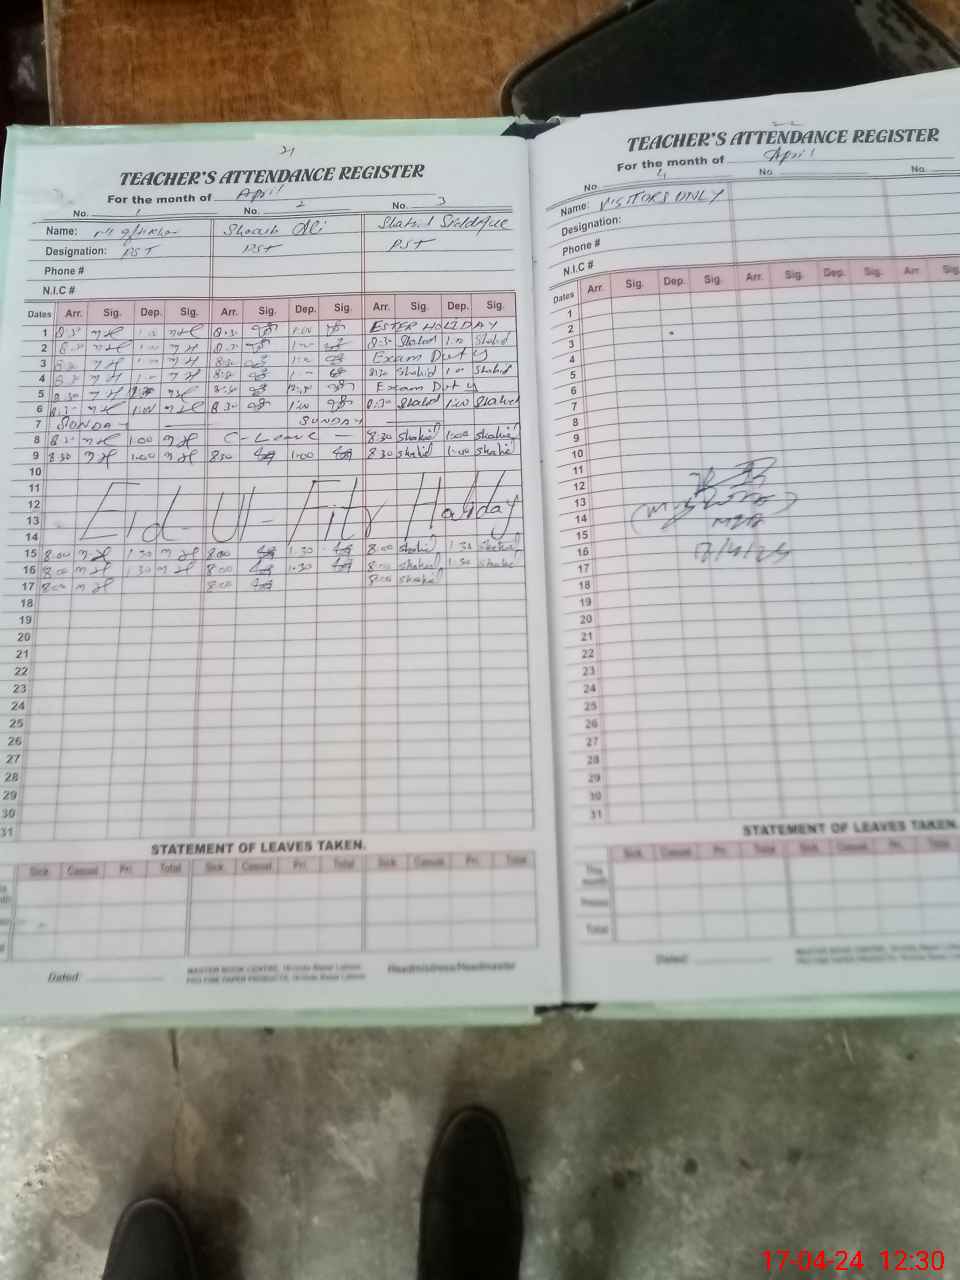 21
TEACHER'S ATTENDANCE REGISTER
For the month of April
No. 1 No. 2 No. 3
Name: Shoaib Ali Shahid Siddique
Designation: PST PST PST
Phone #
N.I.C #
Dates Arr. Sig. Dep. Sig. Arr. Sig. Dep. Sig. Arr. Sig. Dep. Sig.
1 8:30 1:00 8:30 1:00 ESTER HOLIDAY
2 8:30 1:00 8:30 1:00 8:30 Shahid 1:00 Shahid
3 8:30 1:00 8:30 1:00 Exam Duty
4 8:30 1:00 8:30 1:00 8:30 Shahid 1:00 Shahid
5 8:30 8:30 12:30 Exam Duty
6 8:30 1:00 8:30 1:00 8:30 Shahid 1:00 Shahid
7 SUNDAY SUNDAY
8 8:30 1:00 C-Leave 8:30 Shahid 1:00 Shahid
9 8:30 1:00 8:30 1:00 8:30 Shahid 1:00 Shahid
10
11
12 Eid-Ul-Fitr Holiday
13
14
15 8:00 1:30 8:00 1:30 8:00 Shahid 1:30 Shahid
16 8:00 1:30 8:00 1:30 8:00 Shahid 1:30 Shahid
17 8:00 8:00 8:00 Shahid
18
19
20
21
22
23
24
25
26
27
28
29
30
31
STATEMENT OF LEAVES TAKEN.
Sick Casual Pri. Total Sick Casual Pri. Total Sick Casual Pri. Total
Dated
Headmistress/Headmaster
22
TEACHER'S ATTENDANCE REGISTER
For the month of April
No. 4 No. No.
Name: VISITORS ONLY
Designation:
Phone #
N.I.C #
Dates Arr. Sig. Dep. Sig. Arr. Sig. Dep. Sig. Arr. Sig.
1
2
3
4
5
6
7
8
9
10
11
12
13
14
15
16
17
18
19
20
21
22
23
24
25
26
27
28
29
30
31
STATEMENT OF LEAVES TAKEN.
Sick Casual Pri. Total Sick Casual Pri. Total
This month
Total
Dated
17-04-24 12:30